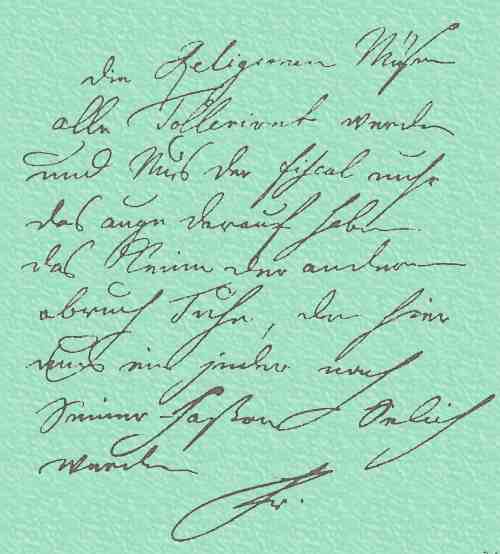 die Religionen Müsen
alle Tolleriret werden
und Mus der fiscal nuhr
das auge darauf haben
das Keine der anderen
abruch Tuhe, den hier
mus ein jeder nach
Seiner Faßon Selich
werden
Fr.